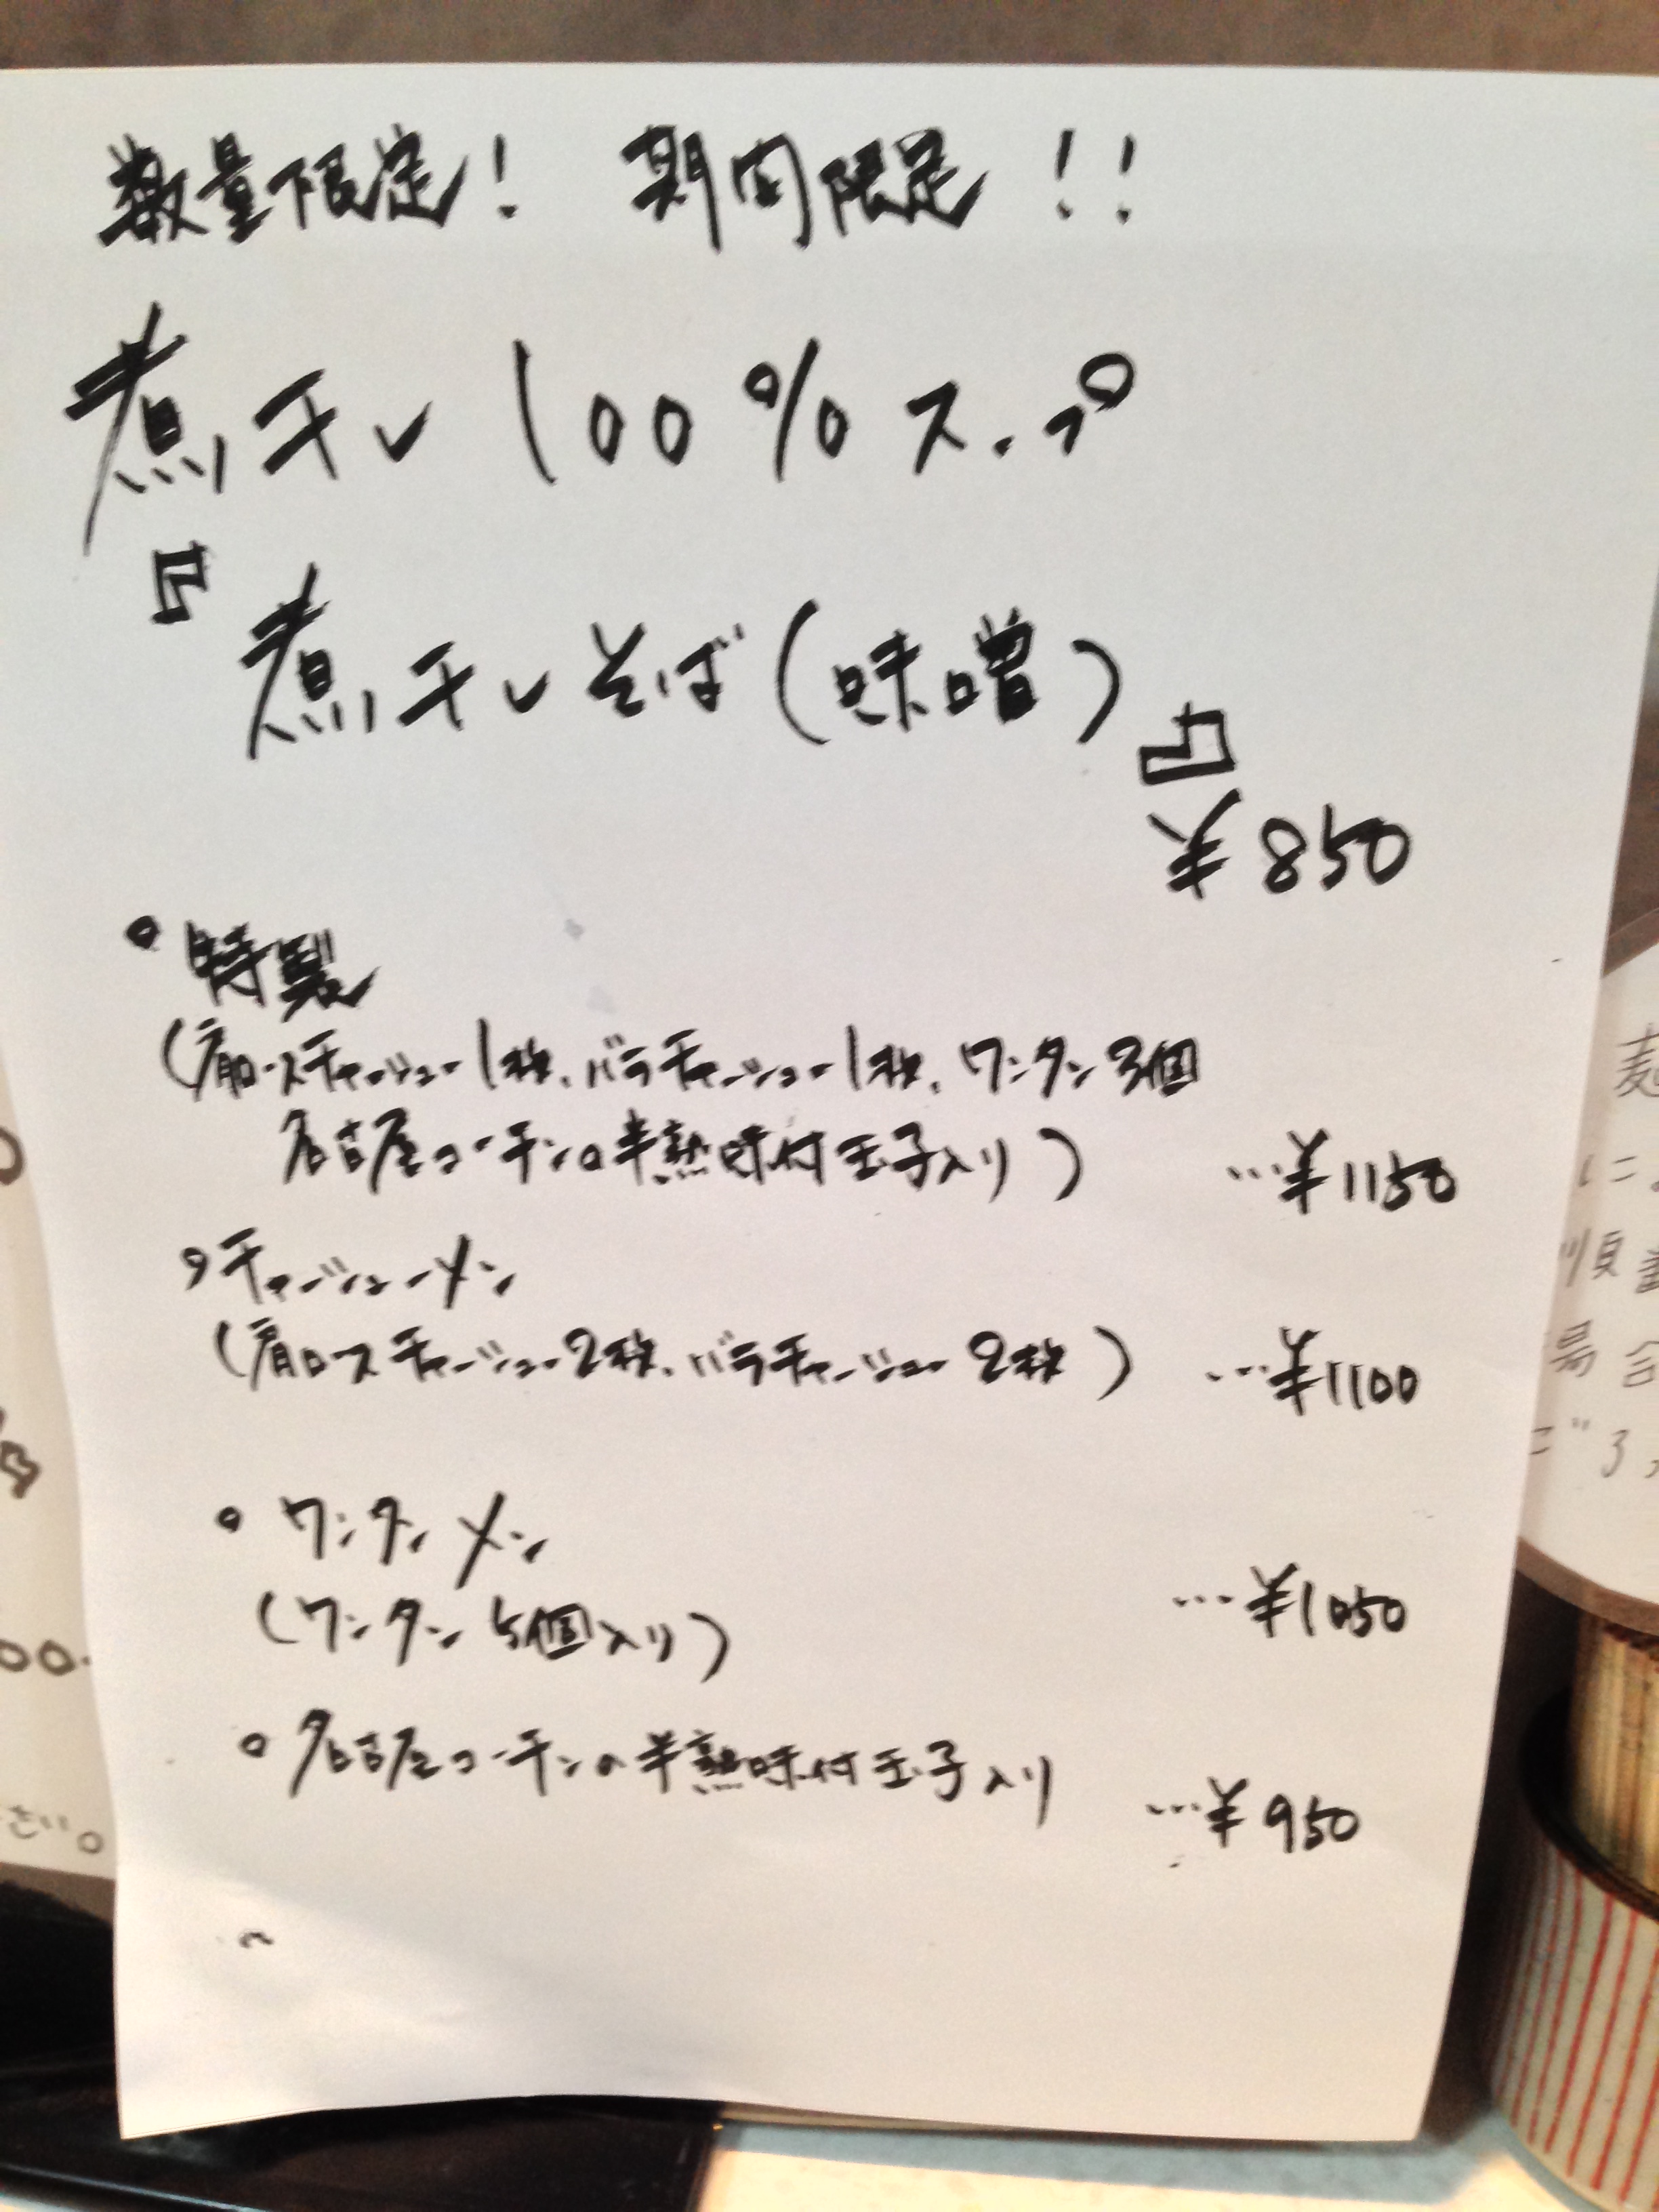 数量限定！ 期間限定！！
煮干し100%スープ
『煮干しそば(味噌)』
¥850
・特製
(肩ロースチャーシュー1枚、バラチャーシュー1枚、ワンタン3個
名古屋コーチンの半熟味付玉子入り) …¥1150
・チャーシューメン
(肩ロースチャーシュー2枚、バラチャーシュー2枚) …¥1100
・ワンタンメン
(ワンタン5個入り) …¥1050
・名古屋コーチンの半熟味付玉子入り …¥950